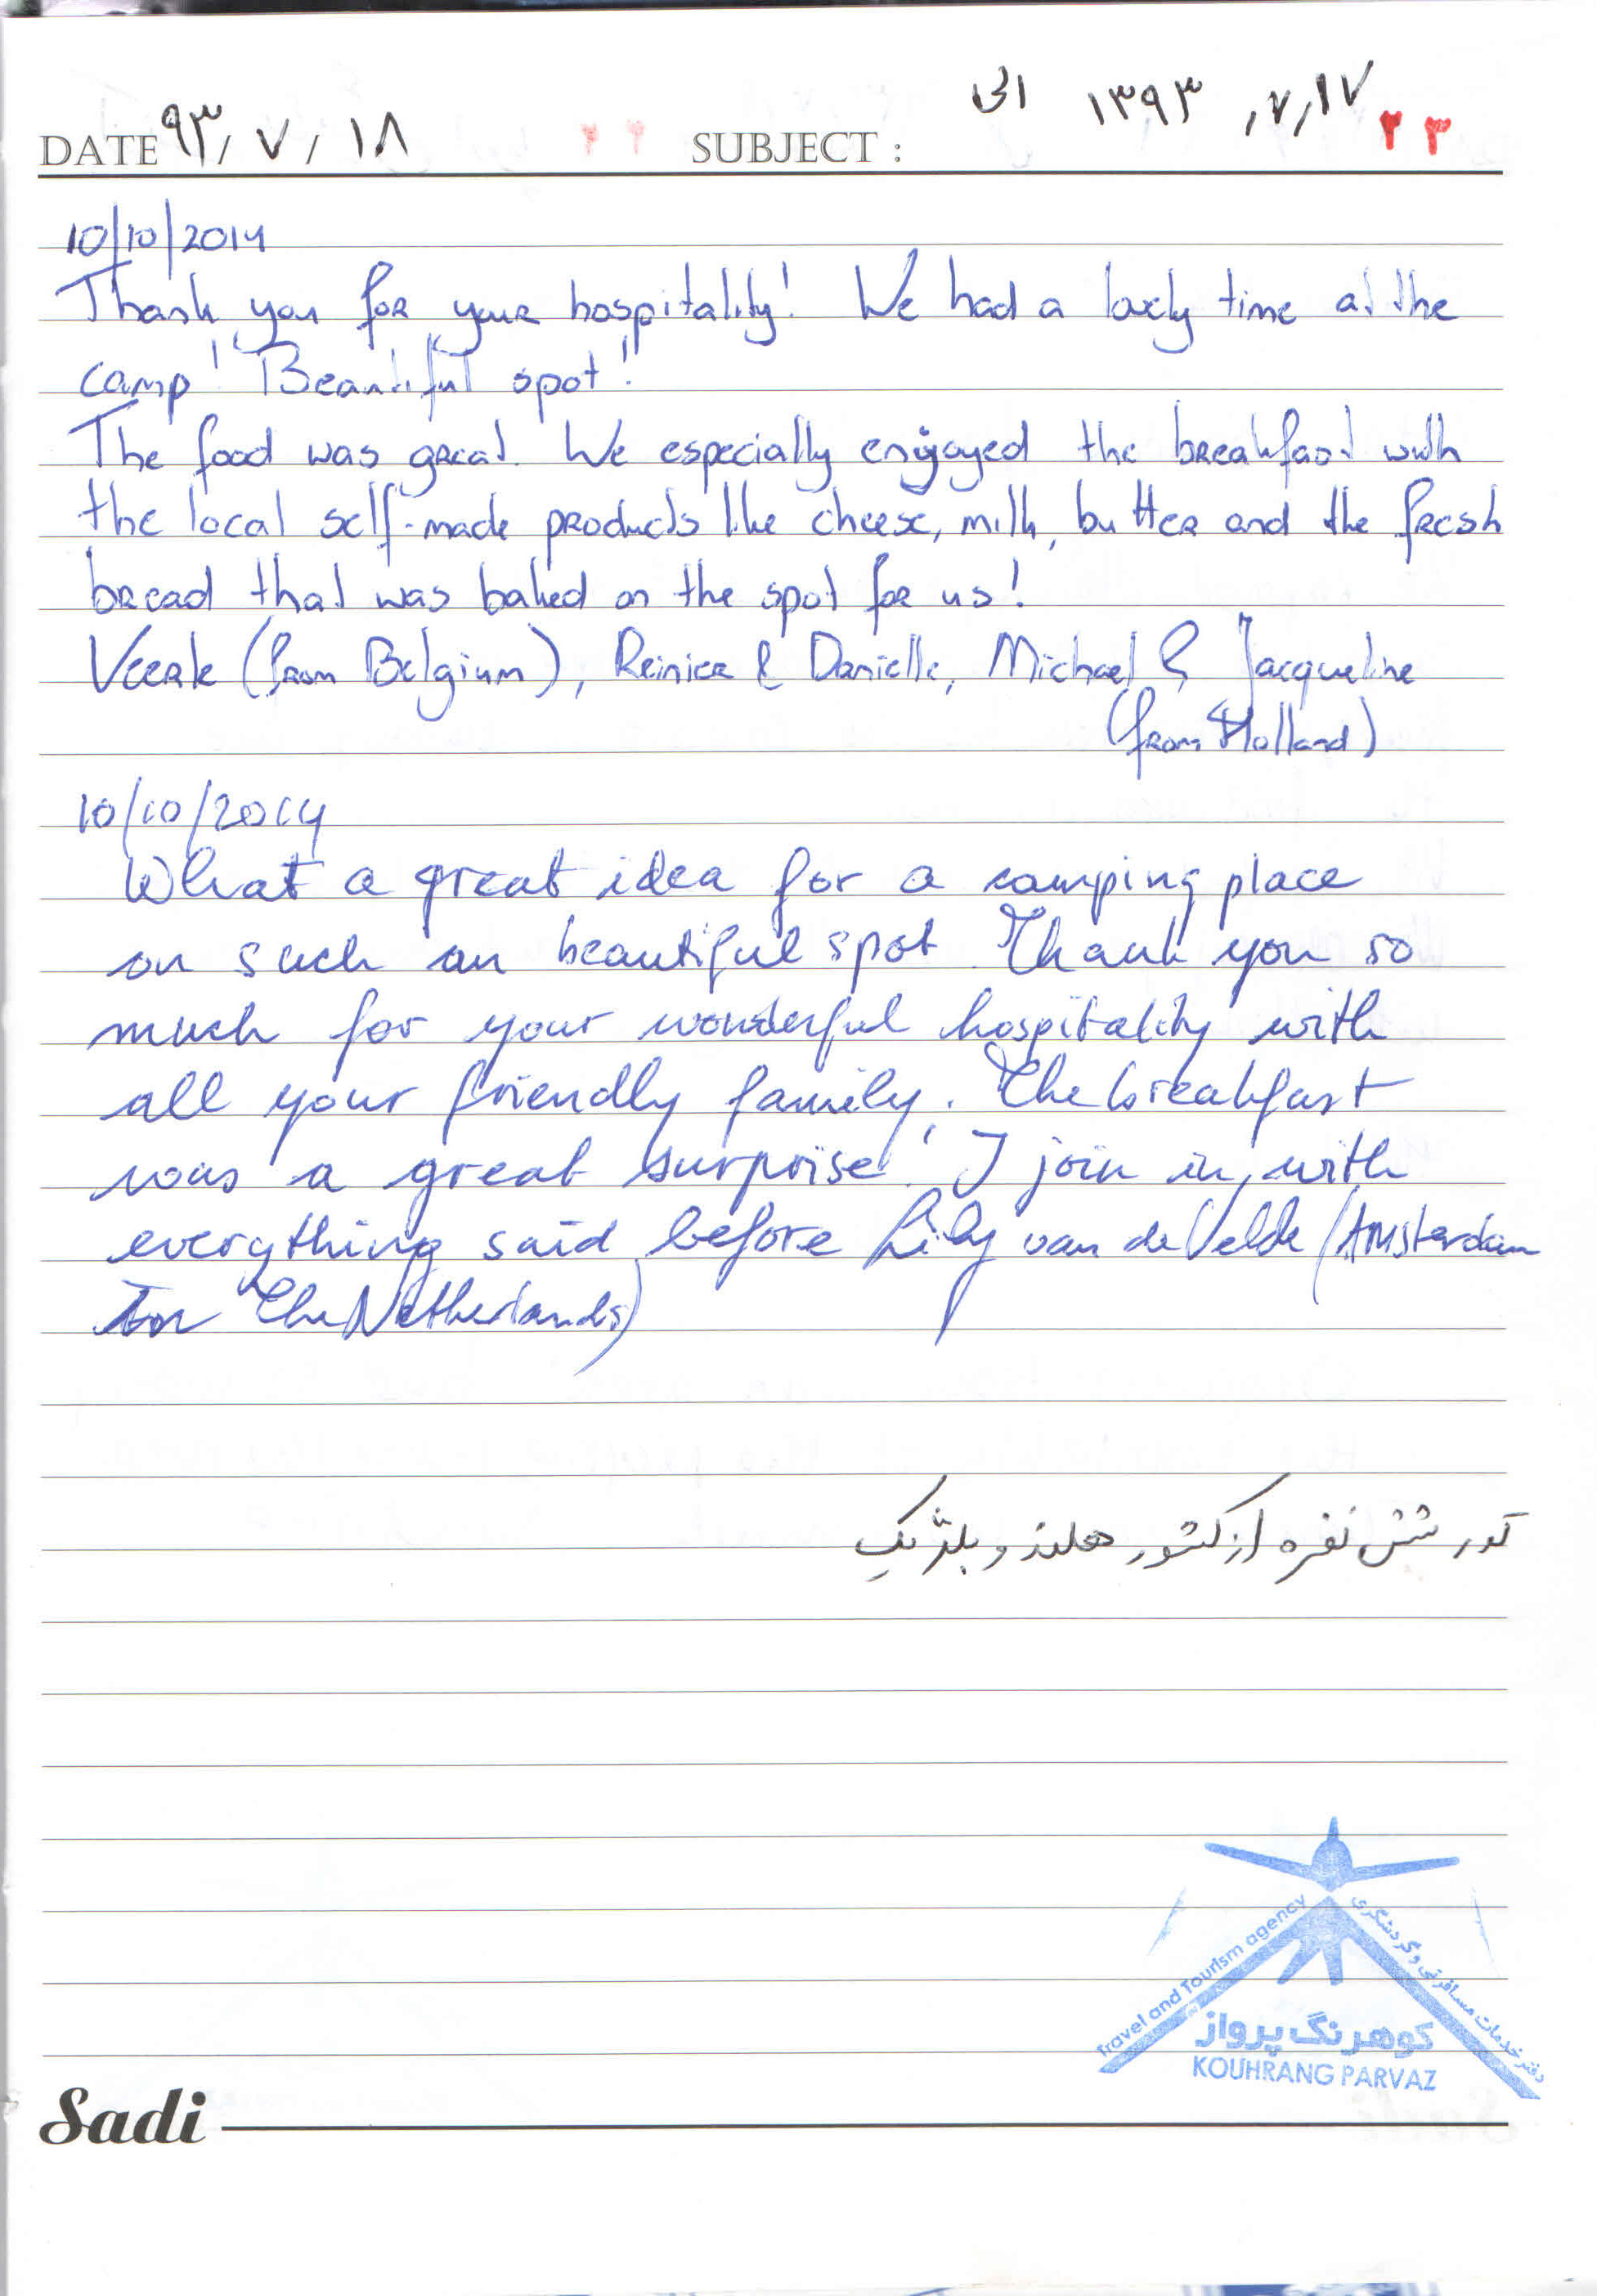 DATE ۹۳/۷/۱۸ SUBJECT : ۱۳۹۳/۷/۱۷ الی ۲۳
10/10/2014
Thank you for your hospitality! We had a lovely time at the
camp! Beautiful spot!
The food was great. We especially enjoyed the breakfast with
the local self-made products like cheese, milk, butter and the fresh
bread that was baked on the spot for us!
Veerle (from Belgium), Reinier & Danielle, Michael & Jacqueline
(from Holland)
10/10/2014
What a great idea for a camping place
on such an beautiful spot. Thank you so
much for your wonderful hospitality with
all your friendly family. The breakfast
was a great surprise! I join in with
everything said before Lily van de Velde (Amsterdam
The Netherlands)
تور شش نفره از کشور هلند و بلژیک
Travel and Tourism agency
دفتر خدمات مسافرتی و گردشگری
کوهرنگ پرواز
KOUHRANG PARVAZ
Sadi